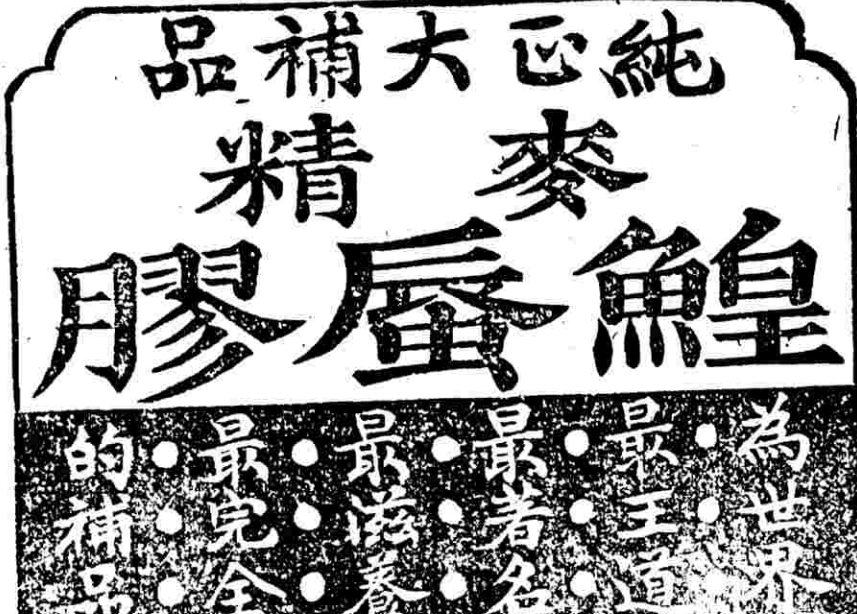 純正大補品
麥精
鰉蜃膠
為世界
最王道
最著名
最滋養
最完全
的補品